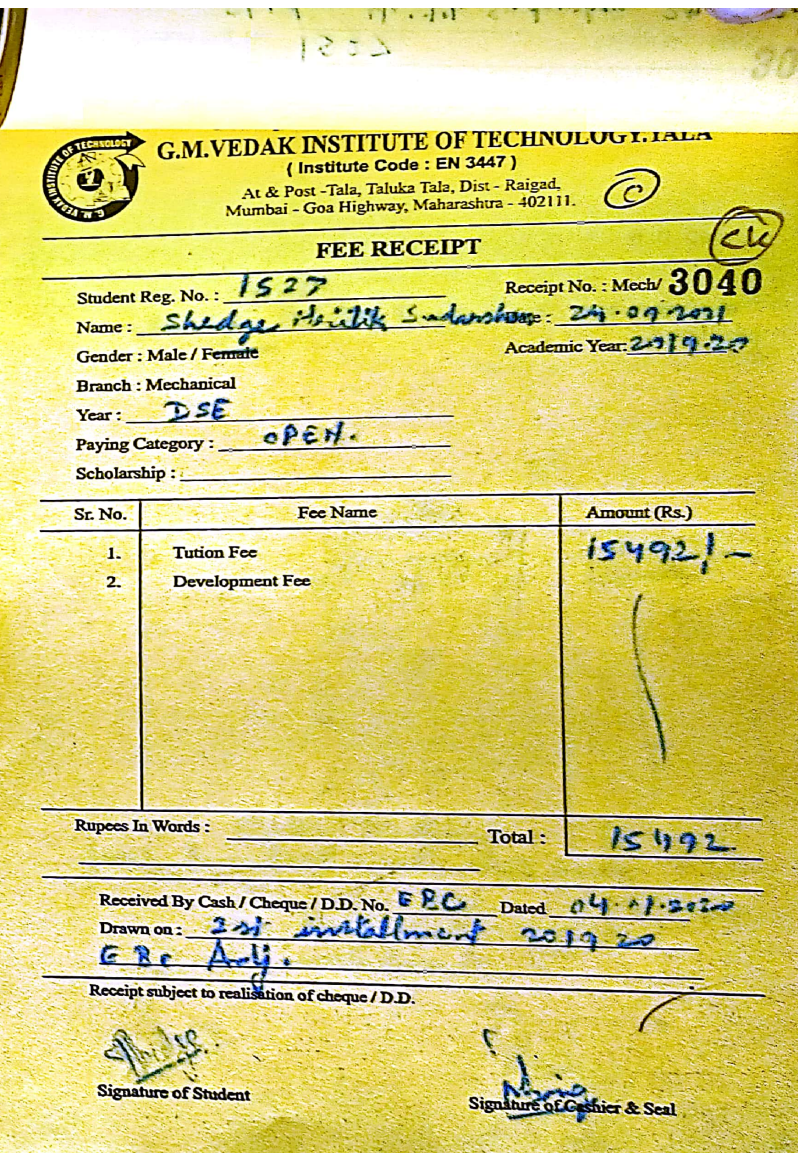 G.M.VEDAK INSTITUTE OF TECHNOLOGY.TALA
( Institute Code : EN 3447 )
At & Post -Tala, Taluka Tala, Dist - Raigad,
Mumbai - Goa Highway, Maharashtra - 402111.
C
FEE RECEIPT
Student Reg. No. : 1527 Receipt No. : Mech/ 3040
Name : Shedge Sudarshan : 24.09.2021
Gender : Male / Female Academic Year: 2019.20
Branch : Mechanical
Year : DSE
Paying Category : OPEN.
Scholarship :
Sr. No. Fee Name Amount (Rs.)
1. Tution Fee 15492/-
2. Development Fee
Rupees In Words : Total : 15492
Received By Cash / Cheque / D.D. No. EBC Dated 04.01.2020
Drawn on : installment 2019 20
EBC Adj.
Receipt subject to realisation of cheque / D.D.
Signature of Student Signature of Cashier & Seal